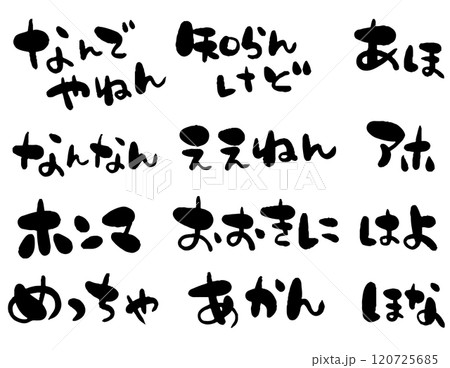 なんで
やねん
知らん
けど
あほ
なんなん
ええねん
アホ
ホンマ
おおきに
はよ
めっちゃ
あかん
ほな
PIXTA
pixta.jp - 120725685